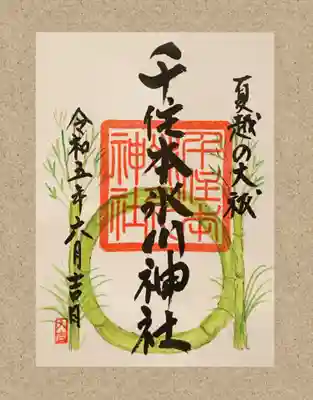 夏越の大祓
千住本氷川神社
千住本氷川神社
令和五年六月吉日